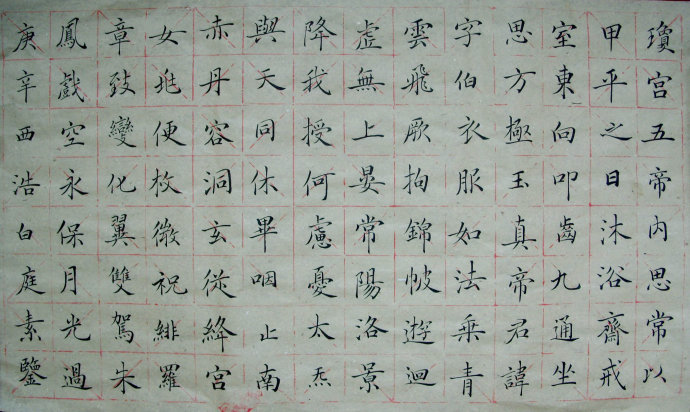 瓊宮五帝內思常以
甲平之日沐浴齋戒
室東向叩齒九通坐
思方極玉真帝君諱
字伯衣服如法乘青
雲飛厥拘錦帔遊迴
虛無上晏常陽洛景
降我授何慮憂太炁
與天同休畢咽止南
赤丹容洞玄從絳宮
女兆便枚微祝緋羅
章致變化翼雙駕朱
鳳戲空永保月光過
庚辛西浩白庭素鑒